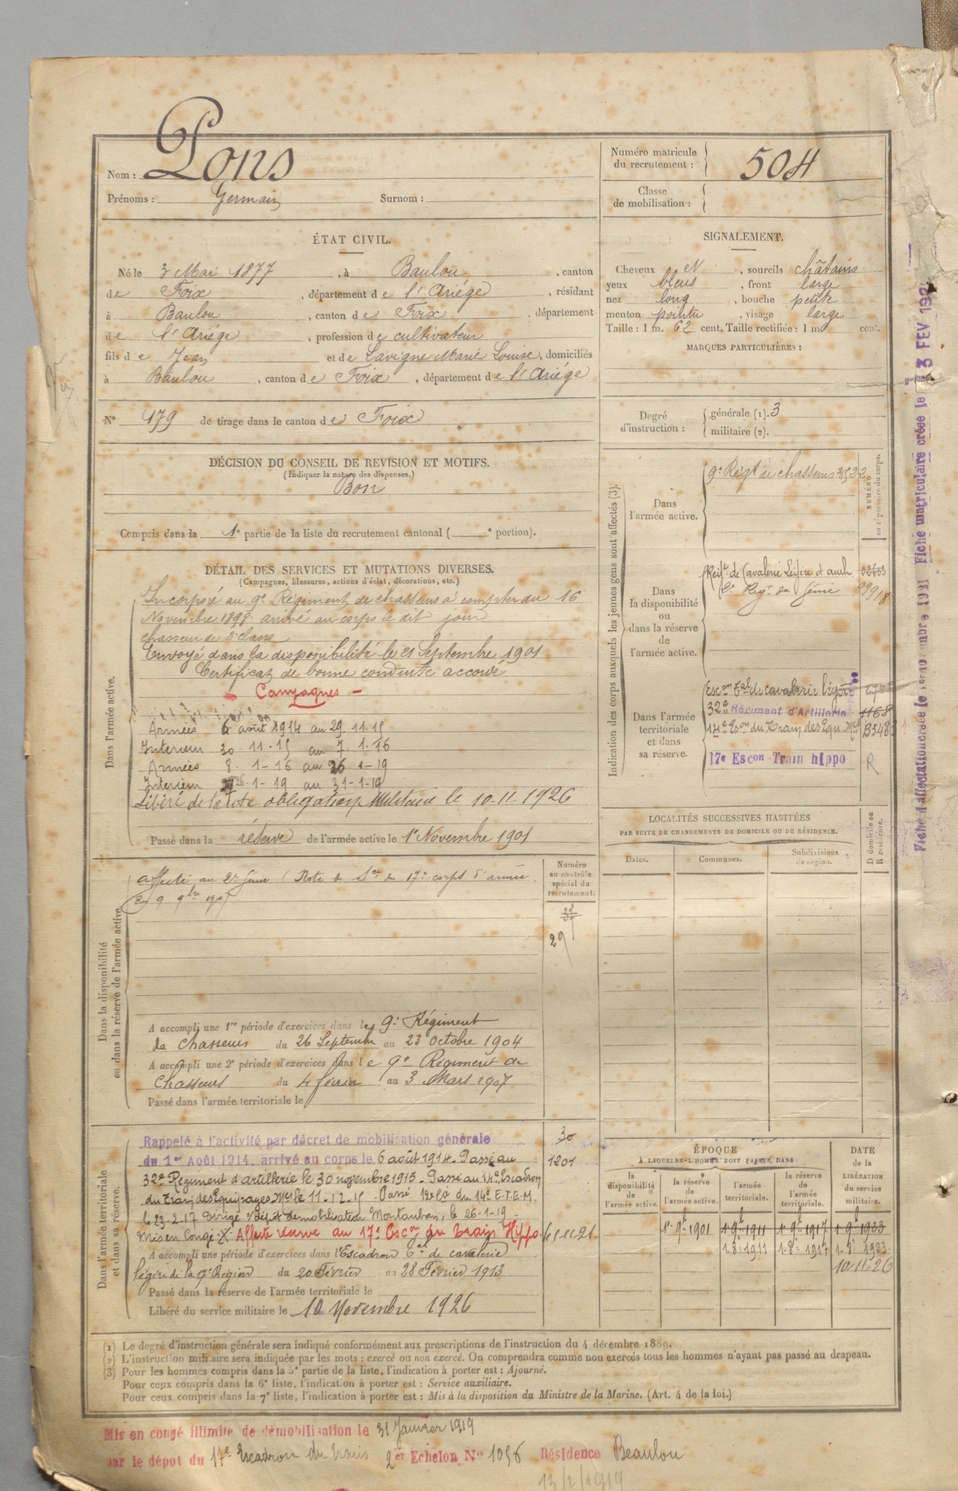 Nom : Pons
Prénoms : Germain Surnom :
Numéro matricule du recrutement : 504
Classe de mobilisation :
ÉTAT CIVIL.
Né le 3 Mai 1877, à Baulou, canton
de Foix, département de l'Ariége, résidant
à Baulou, canton de Foix département
de l'Ariége, profession de cultivateur
fils de Jean et de Lavigne Marie Louise, domiciliés
à Baulou, canton de Foix, département de l'Ariége
N° 179 de tirage dans le canton de Foix
SIGNALEMENT.
Cheveux, sourcils châtains
yeux bleus, front large
nez long, bouche petite
menton pointu, visage large
Taille : 1 m. 62 cent. Taille rectifiée : 1 m cent.
MARQUES PARTICULIÈRES :
Degré d'instruction : générale (1). 3
militaire (2).
DÉCISION DU CONSEIL DE REVISION ET MOTIFS.
(Indiquer la nature des dispenses.)
Bon
Compris dans la 1e partie de la liste du recrutement cantonal ( e portion).
DÉTAIL DES SERVICES ET MUTATIONS DIVERSES.
(Campagnes, blessures, actions d'éclat, décorations, etc.)
Dans l'armée active.
Incorporé au 9e Régiment de chasseurs à compter du 16
Novembre 1898 arrivé au corps le dit jour
chasseur de 2e classe
Envoyé dans la disponibilité le 21 Septembre 1901
Certificat de bonne conduite accordé
Campagnes
Armées 6 août 1914 au 29.11.15
Intérieur 30-11-15 au 7.1.16
Armées 8-1-16 au 26-1-19
Intérieur -1-19 au 31-1-19
Libéré de toute obligation Militaire le 10.11.1926
Passé dans la réserve de l'armée active le 1er Novembre 1901
Indication des corps auxquels les jeunes gens sont affectés (3).
NUMÉRO
Dans l'armée active.
9e Régt de chasseurs 3532
Dans la disponibilité ou dans la réserve de l'armée active.
Régt de Cavalerie Légère d'auch
2e Régt du Génie
Dans l'armée territoriale et dans sa réserve.
Escon Tal de cavalerie légère
32e Régiment d'Artillerie 1168
14e Escon du Train des Equ
17e Escon Train hippo R
LOCALITÉS SUCCESSIVES HABITÉES
PAR SUITE DE CHANGEMENTS DE DOMICILE OU DE RÉSIDENCE.
Dates. Communes. Subdivisions de région. D domicile ou R résidence.
Dans la disponibilité ou dans la réserve de l'armée active
Numéro au contrôle spécial du recrutement.
affecté au 2e Génie
A accompli une 1re période d'exercices dans le 9e Régiment
de Chasseurs du 26 Septembre au 23 Octobre 1904
A accompli une 2e période d'exercices dans le 9e Régiment de
Chasseurs du 4 février au 3 Mars 1907
Passé dans l'armée territoriale le
Dans l'armée territoriale et dans sa réserve.
Rappelé à l'activité par décret de mobilisation générale
du 1er Août 1914, arrivé au corps le 6 août 1914. Passé au 1201
32e Régiment d'artillerie le 30 novembre 1915. Passé au 14e Escadron
du Train des Equipages Mres le 11.12.15. Passé du 14e E.T.E.M.
le 23-2-17 Dirigé Dépôt démobilisation Montauban, le 26-1-19
Mis en Congé Affecté réserve au 17e Escon du Train Hippo
A accompli une période d'exercices dans l'Escadron Tal de cavalerie
légère de la 17e Région du 20 Février au 28 Février 1913
Passé dans la réserve de l'armée territoriale le
Libéré du service militaire le 10 Novembre 1926
ÉPOQUE
À LAQUELLE L'HOMME DOIT PASSER DANS
la disponibilité de l'armée active. la réserve de l'armée active. l'armée territoriale. la réserve de l'armée territoriale.
DATE de la LIBÉRATION du service militaire.
1er 9bre 1901 1 9bre 1911 1 9bre 1917 1 9bre 1923
1.8.1911 1-8-1917 1-8-1923
10-11-26
(1) Le degré d'instruction générale sera indiqué conformément aux prescriptions de l'instruction du 4 décembre 1889.
(2) L'instruction militaire sera indiquée par les mots : exercé ou non exercé. On comprendra comme non exercés tous les hommes n'ayant pas passé au drapeau.
(3) Pour les hommes compris dans la 5e partie de la liste, l'indication à porter est : Ajourné.
Pour ceux compris dans la 6e liste, l'indication à porter est : Service auxiliaire.
Pour ceux compris dans la 7e liste, l'indication à porter est : Mis à la disposition du Ministre de la Marine. (Art. 4 de la loi.)
Mis en congé illimité de démobilisation le 31 Janvier 1919
par le dépôt du 17e Escadron du train 2e Echelon N° 1056 Résidence Beaulou
13/2/1919
Fiche matriculaire créée le 3 FEV 192